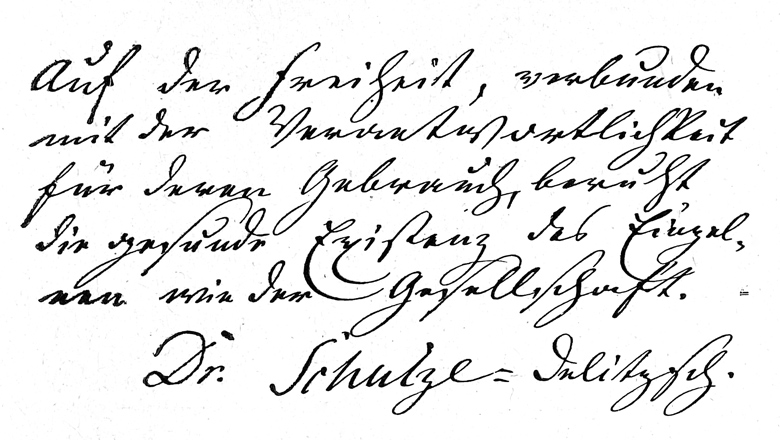 Auf der Freiheit, verbunden
mit der Verantwortlichkeit
für deren Gebrauch, beruht
die gesunde Existenz des Einzel-
nen wie der Gesellschaft. =
Dr. Schulze=Delitzsch.